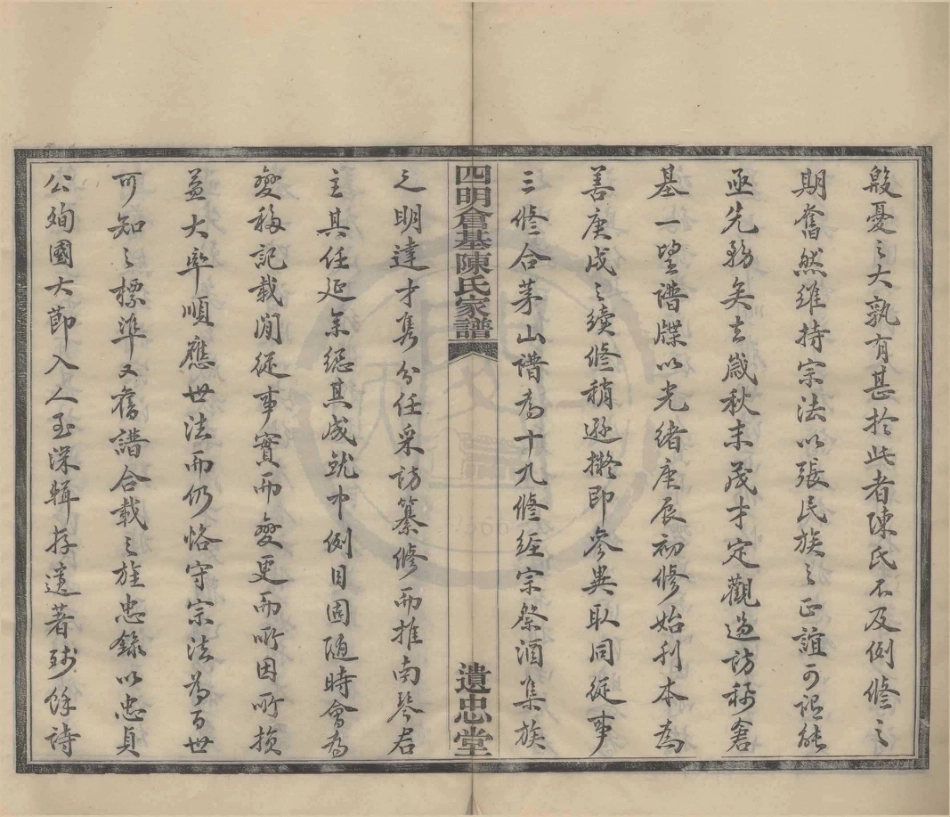 殷憂之大孰有甚於此者陳氏不及例修之
期奮然維持宗法以張民族之正誼可謂能
亟先務矣去歲秋末茂才定觀過訪稱倉
基一望譜牒以光緒庚辰初修始刊本為
善庚戌之續修稍遜擬即參異取同從事
三修合茅山譜為十九修經宗祭酒集族
四明倉基陳氏家譜
遺忠堂
之明達才雋分任采訪纂修而推南琴君
主其任延余總其成就中例目固隨時會為
變稱記載閒從事實而變更而所因所損
益大率順應世法而仍恪守宗法為百世
可知之標準又舊譜合載之旌忠錄以忠貞
公殉國大節入人至深輯存遺著殘餘詩